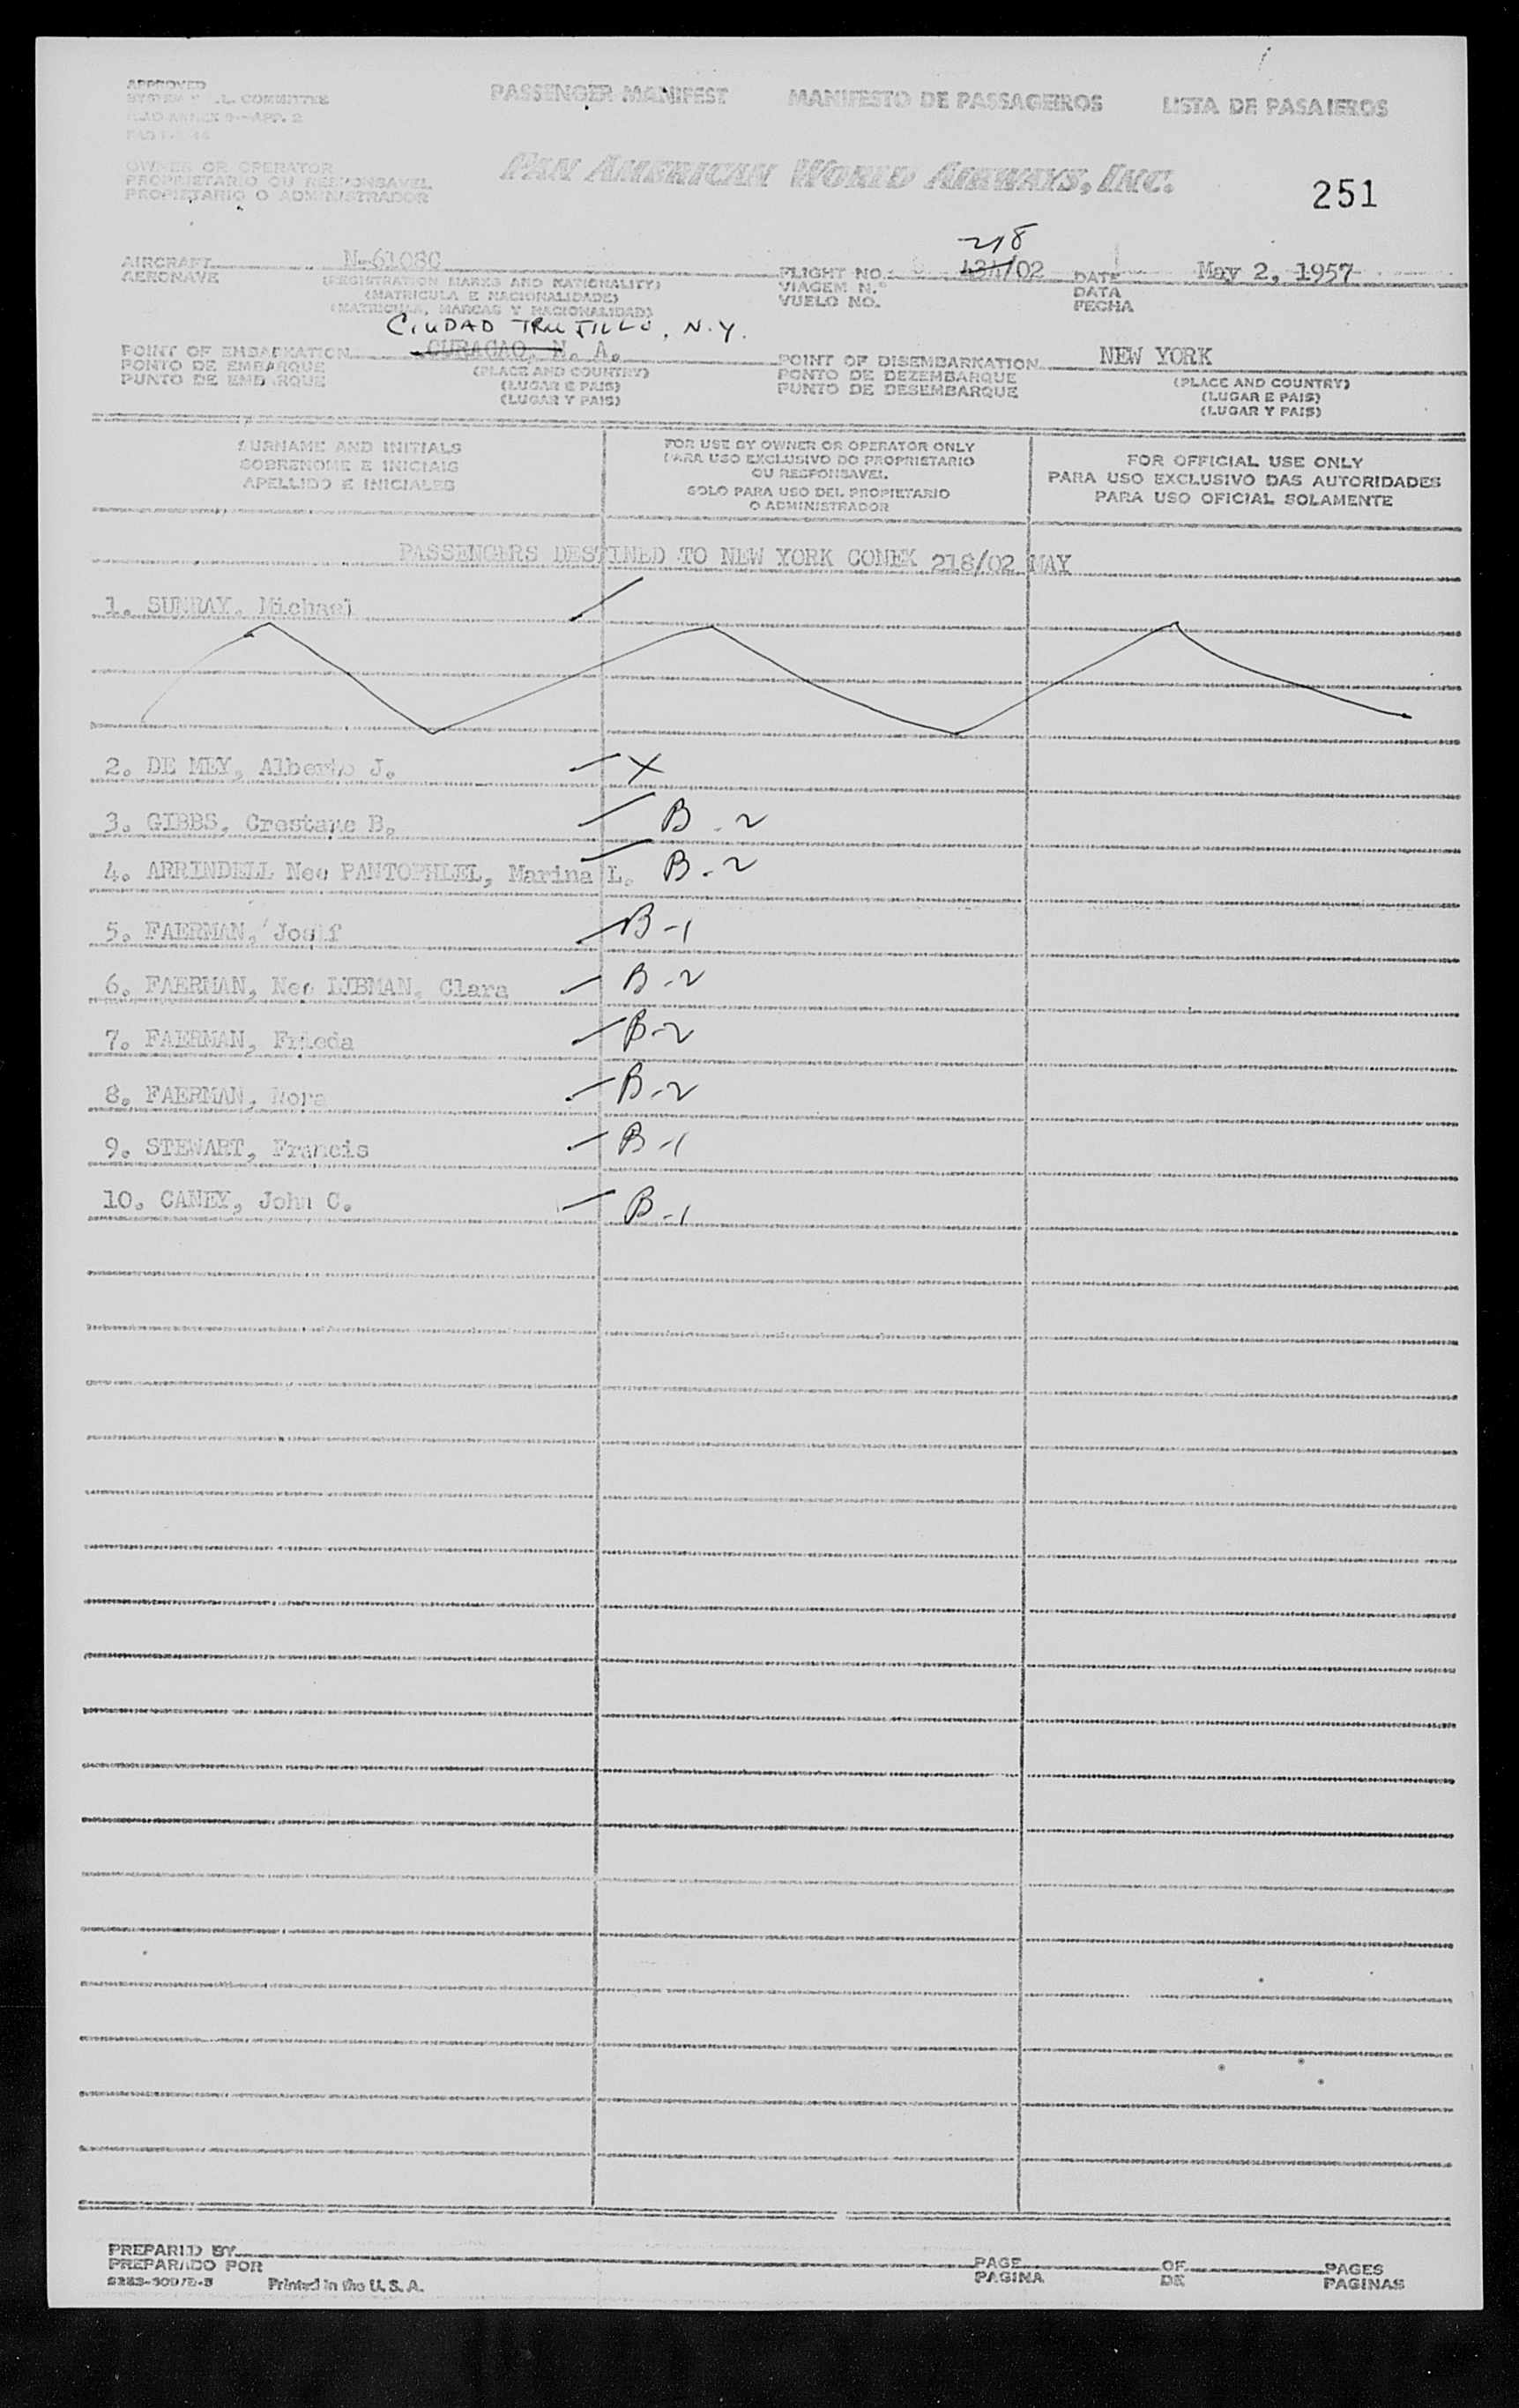 APPROVED
COMMITTEE
PASSENGER MANIFEST MANIFESTO DE PASSAGEIROS LISTA DE PASAJEROS
OWNER OR OPERATOR
PROPRIETARIO OU RESPONSAVEL
PROPIETARIO O ADMINISTRADOR
PAN AMERICAN WORLD AIRWAYS, INC.
251
218
AIRCRAFT N-6108C FLIGHT NO. 434/02 DATE May 2, 1957
AERONAVE (REGISTRATION MARKS AND NATIONALITY) VIAGEM N.º DATA
(MATRICULA E NACIONALIDADE) VUELO NO. FECHA
(MATRICULA, MARCAS Y NACIONALIDAD)
CIUDAD TRUJILLO, N.Y.
POINT OF EMBARKATION CURACAO, N. A. POINT OF DISEMBARKATION NEW YORK
PONTO DE EMBARQUE (PLACE AND COUNTRY) PONTO DE DEZEMBARQUE (PLACE AND COUNTRY)
PUNTO DE EMBARQUE (LUGAR E PAIS) PUNTO DE DESEMBARQUE (LUGAR E PAIS)
(LUGAR Y PAIS) (LUGAR Y PAIS)
SURNAME AND INITIALS
SOBRENOME E INICIAIS
APELLIDO E INICIALES
FOR USE BY OWNER OR OPERATOR ONLY
PARA USO EXCLUSIVO DO PROPRIETARIO
OU RESPONSAVEL
SOLO PARA USO DEL PROPIETARIO
O ADMINISTRADOR
FOR OFFICIAL USE ONLY
PARA USO EXCLUSIVO DAS AUTORIDADES
PARA USO OFICIAL SOLAMENTE
PASSENGERS DESTINED TO NEW YORK CONEX 218/02 MAY
1. SUNRAY, Michael
2. DE MEY, Alberto J. X
3. GIBBS, B. B-2
4. ARRINDELL Nee PANTOPHLEL, Marina L. B-2
5. FAERMAN, Josif B-1
6. FAERMAN, Nee LIBMAN, Clara B-2
7. FAERMAN, Frieda B-2
8. FAERMAN, Nora B-2
9. STEWART, Francis B-1
10. CANEY, John C. B-1
PREPARED BY PAGE OF PAGES
PREPARADO POR PAGINA DE PAGINAS
Printed in the U. S. A.